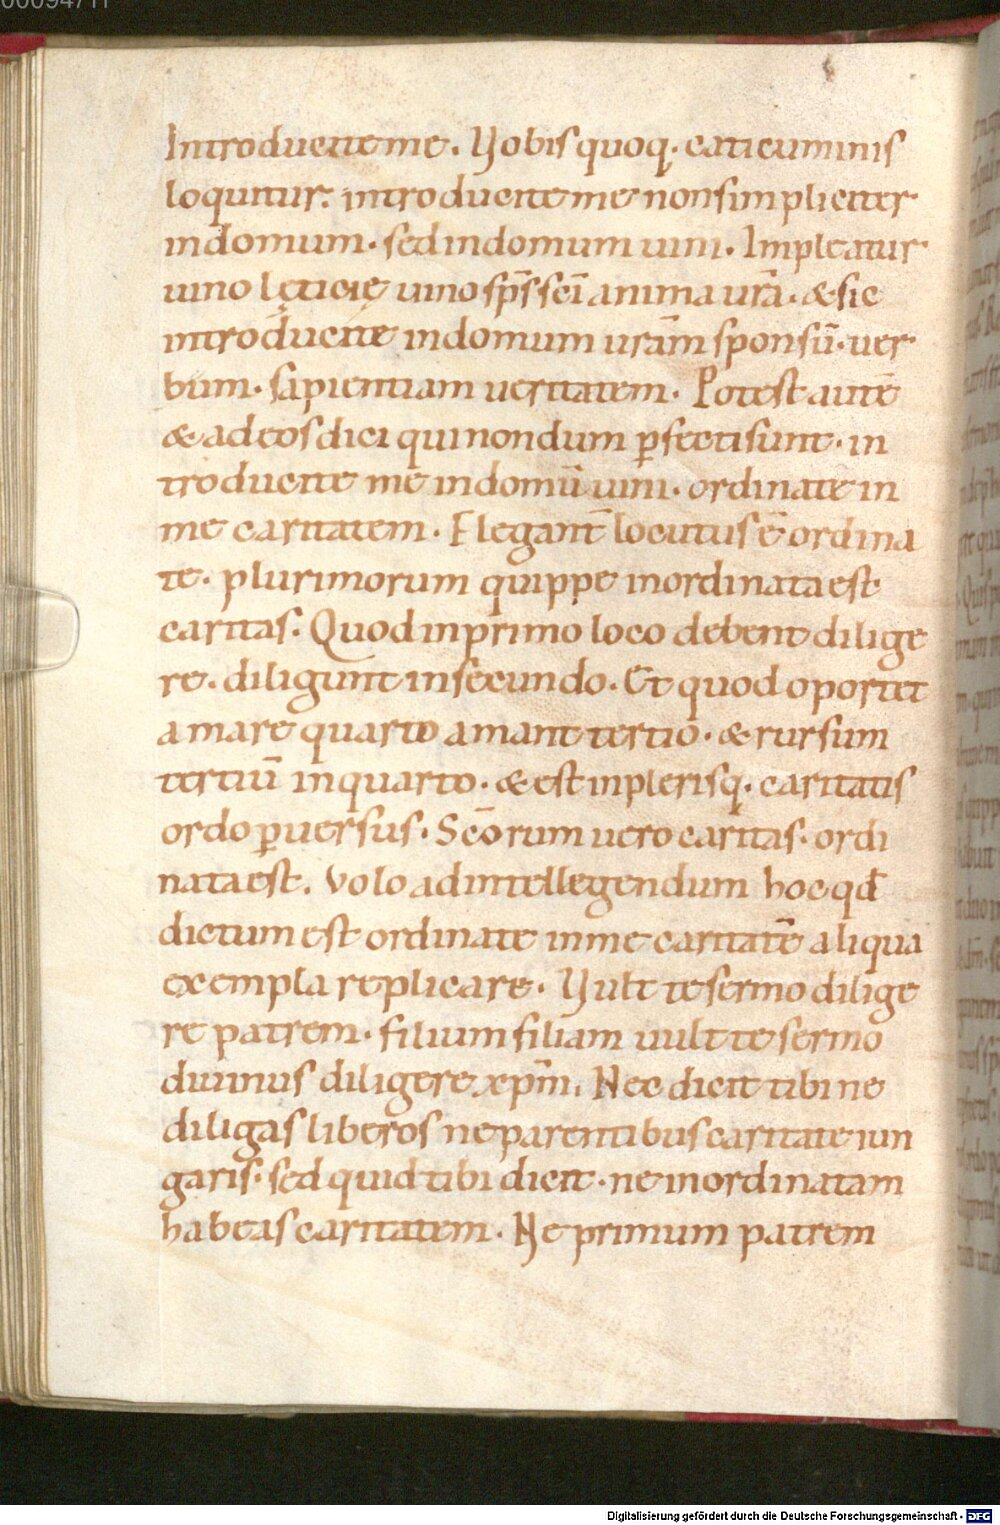 00094711
Introducite me. Vobis quoq· caticuminis
loquitur: introducite me non simpliciter
in domum· sed in domum uini. Impleatur
uino lęticię uino sp̄s sc̄i anima ur̄a· & sic
introducite in domum ur̄am sponsū· uer
bum· sapientiam ueritatem. Potest autē
& ad eos dici qui nondum ꝑfecti sunt· in
troducite me in domū uini· ordinate in
me caritatem. Elegant̄ locutus ē ordina
te· plurimorum quippe inordinata est
caritas. Quod in primo loco debent dilige
re· diligunt in secundo. Et quod oportet
amare quarto amant tertio· & rursum
tertiū in quarto· & est in plerisq· caritatis
ordo ꝑuersus. Sc̄orum uero caritas· ordi
nata est. Volo ad intellegendum hoc qđ
dictum est ordinate in me caritatē aliqua
exempla replicare. Vult te sermo dilige
re patrem· filium filiam uult te sermo
diuinus diligere xp̄m. Nec dicit tibi ne
diligas liberos ne parentibus caritate iun
garis· sed quid tibi dicit· ne inordinatam
habeas caritatem. Ne primum patrem
Digitalisierung gefördert durch die Deutsche Forschungsgemeinschaft - DFG